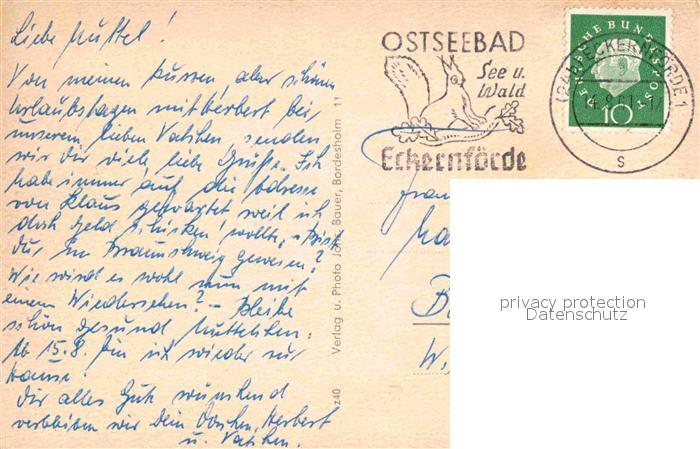 Liebe Muttel!
Von meinen kurzen, aber schönen
Urlaubstagen mit Herbert bei
unserem lieben Vatichen senden
wir Dir viele liebe Grüße. Ich
habe immer auf die Adresse
von Klaus gewartet weil ich
doch Geld schicken wollte, - Bist
Du in Braunschweig gewesen?
Wie wird es wohl nun mit
einem Wiedersehen? - Bleibe
schön gesund Muttelchen.
Ab 15.8. bin ich wieder zur
Hause!
Dir alles Gute wünschend
verbleiben wir Dein Herbert
u. Vatichen.
z40 Verlag u. Photo Bauer, Bordesholm 11
OSTSEEBAD
See u.
Wald
Eckernförde
DEUTSCHE BUNDESPOST
10
ECKERNFÖRDE 1
s
B
W
privacy protection
Datenschutz